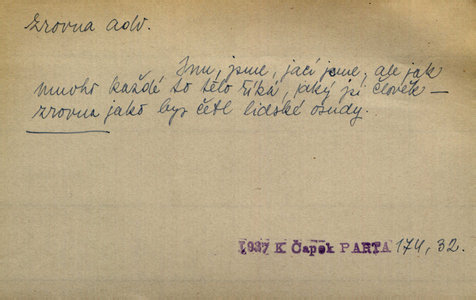 zrovna adv.
Inu, jsme, jací jsme, ale jak
mnoho každé to tělo říká, jaký je člověk —
zrovna jako bys četl lidské osudy.
1937 K Čapek PARTA 174, 32.